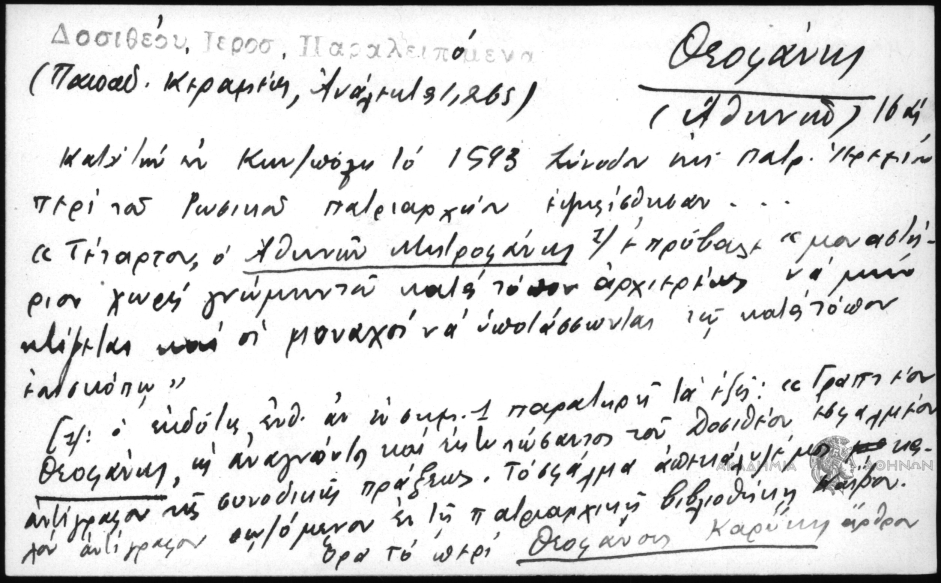 Δοσιθέου, Ιεροσ, Παραλειπόμενα
(Παπαδ. Κεραμεύς, Ἀνάλεκτα 1, 265)
Θεοφάνης
(Ἀθηνῶν) 16 αἰ
Κατὰ τὴν ἐν Κων/πόλει τὸ 1593 Σύνοδον τῆς πατρ. Ἱερεμίου
περὶ τοῦ Ρωσικοῦ πατριαρχείου ἐψηφίσθησαν . . .
« Τέταρτον, ὁ Ἀθηνῶν Μητροφάνης 1/ ἐπρόβαλε « μοναστή-
ριον χωρὶς γνώμην τοῦ κατὰ τόπον ἀρχιερέως νὰ μὴν
κτίζεται καὶ οἱ μοναχοὶ νὰ ὑποτάσσωνται τῷ κατὰ τόπον
ἐπισκόπῳ »
[1/: ὁ ἐκδότης ἔνθ. ἀν ἐν σημ. 1 παρατηρεῖ τὰ ἑξῆς: « Γραπτέον
Θεοφάνης, ὡς ἀναγνόντος καὶ ἐκτυπώσαντος τοῦ Δοσιθέου ἐσφαλμένον
ἀντίγραφον τῆς συνοδικῆς πράξεως. Τὸ σφάλμα ἀπεκάλυψέ μοι κα-
λὸν ἀντίγραφον σωζόμενον ἐν τῇ πατριαρχικῇ βιβλιοθήκῃ Καΐρου.
Ὅρα τὸ περὶ Θεοφάνους Καρύκη ἄρθρον
ΑΚΑΔΗΜΙΑ ΑΘΗΝΩΝ